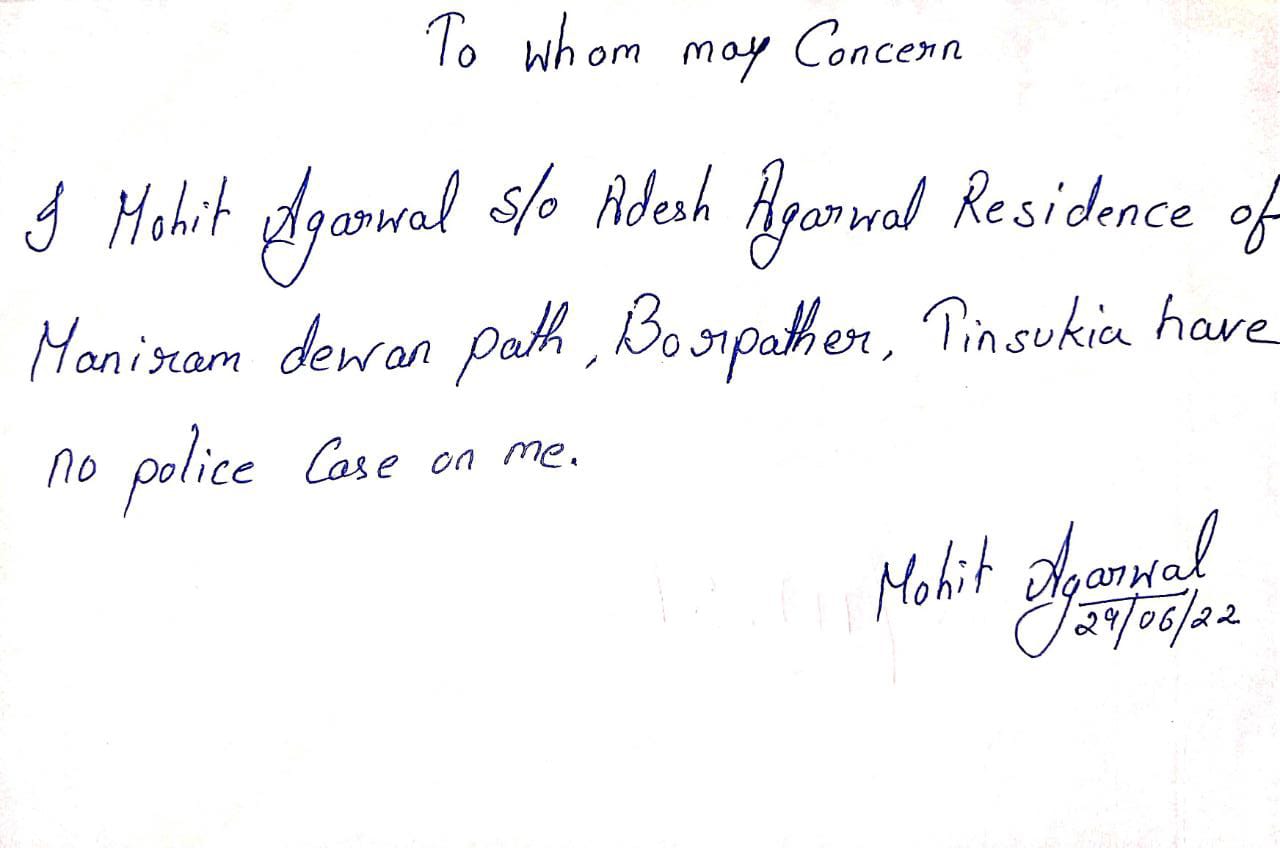 To whom may Concern
I Mohit Agarwal s/o Adesh Agarwal Residence of
Maniram dewan path, Borpather, Tinsukia have
no police Case on me.
Mohit Agarwal
29/06/22